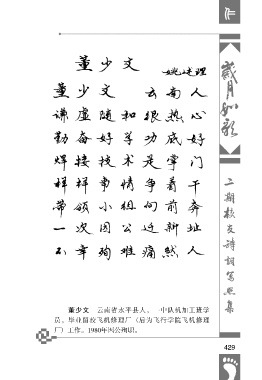 董少文
姚述理
董少文 云南人
谦虚随和很热心
勤奋好学功底好
焊接技术是掌门
样样事情争着干
带领小组向前奔
一次因公迁新址
不幸殉难痛煞人
董少文 云南省永平县人。一中队机加工班学
员。毕业留校飞机修理厂（后为飞行学院飞机修理
厂）工作。1980年因公殉职。
岁月如歌
二期校友诗词写照集
429